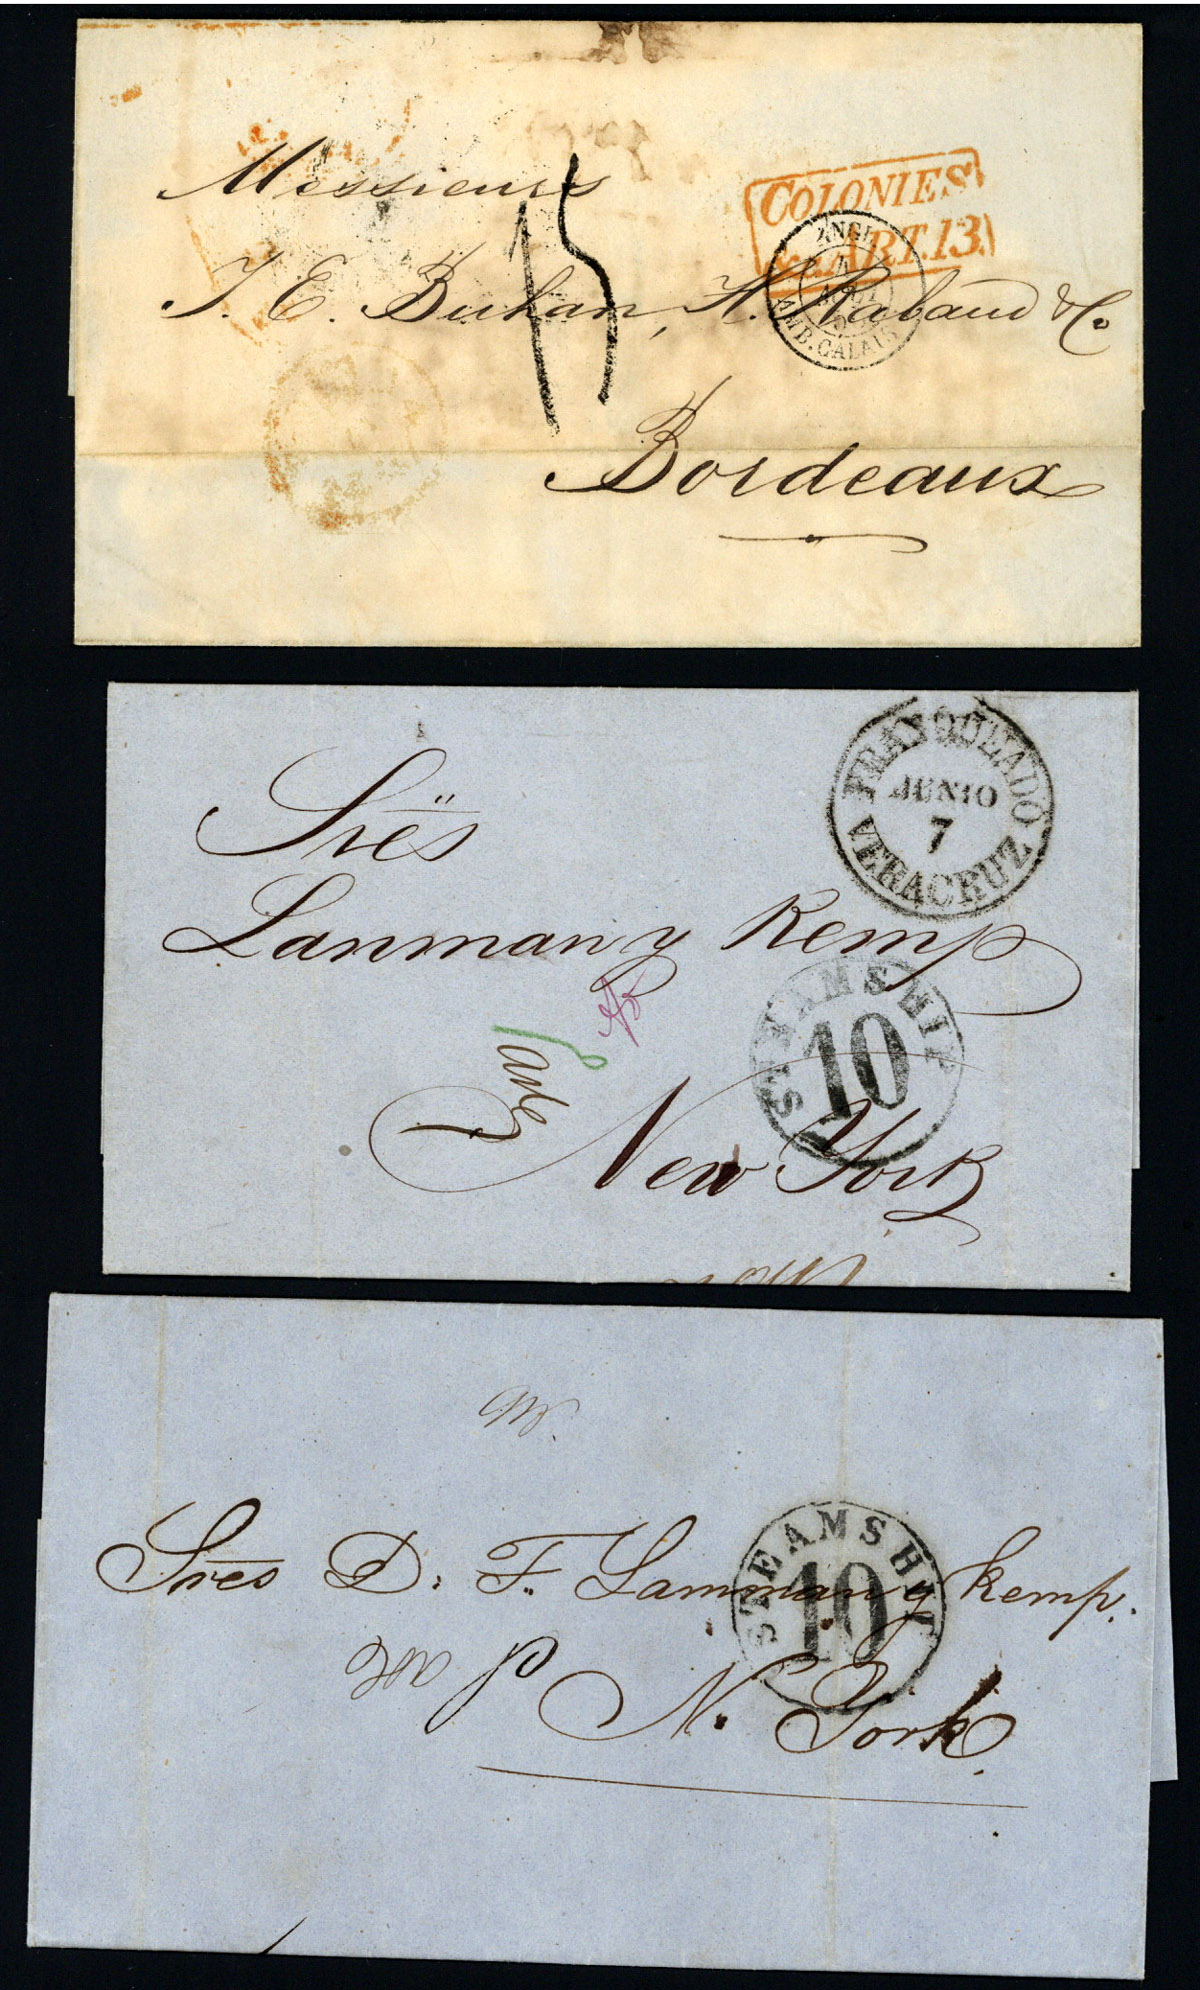 Messieurs
15
COLONIES
&c. ART. 13.
ANGL.
4
AOUT
AMB. CALAIS
J. E. Buhan, A. Rabaud & Co
Bordeaux
FRANQUEADO
JUNIO
7
VERACRUZ
Srēs
Lanman y Kemp
STEAMSHIP
10
New York
Sres D. F. Lamman y Kemp.
STEAMSHIP
10
N. York.